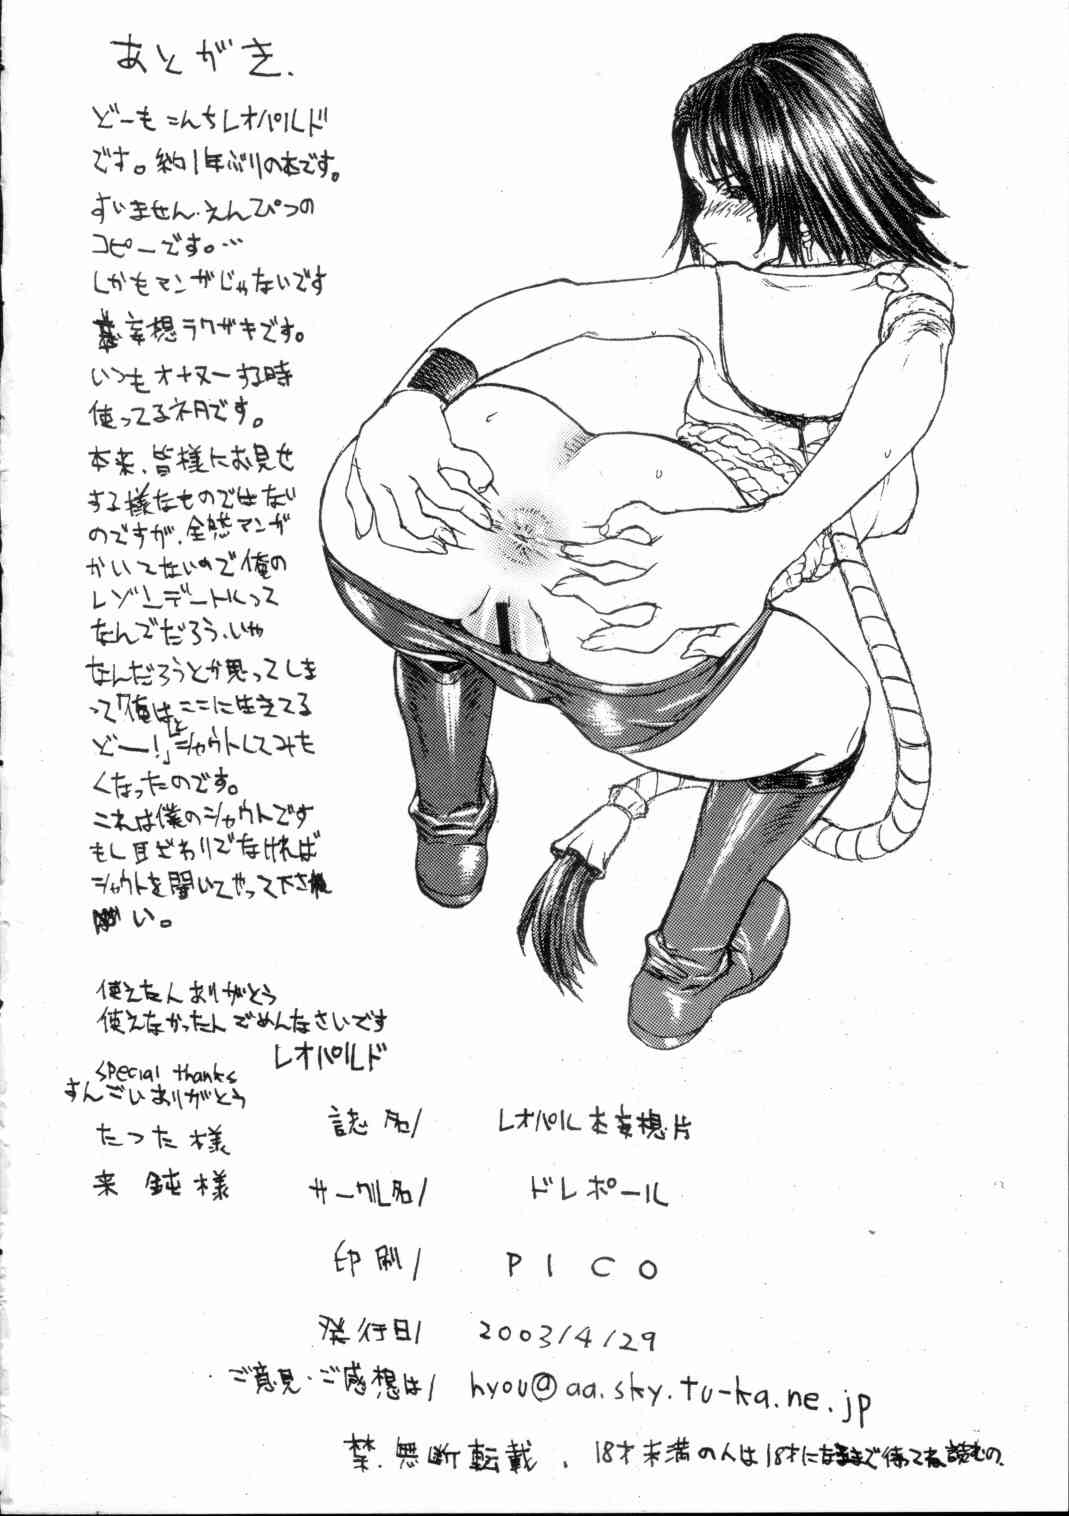 あとがき.
どーもこんちレオパルド
です。約1年ぶりの本です。
すいません・えんぴつの
コピーです。…
しかもマンガじゃないです
妄想ラクガキです。
いつもオナヌーする時
使ってるネタです。
本来、皆様にお見せ
する様なものではない
のですが、全然マンガ
かいてないので俺の
レゾンデートルって
なんでだろう、いや
なんだろうとか思ってしま
って「俺はここに生きてる
どー!」とシャウトしてみた
くなったのです。
これは僕のシャウトです
もし耳ざわりでなければ
シャウトを聞いてやって下さ
い。
使えたんありがとう
使えなかったんでめんなさいです
レオパルド
special thanks
すんごいありがとう
たつた様
来鈍様
誌名/ レオパル本妄想片
サークル名/ ドレポール
印刷/ PICO
発行日/ 2003/4/29
ご意見・ご感想は/ hyou@aa.sky.tu-ka.ne.jp
禁.無断転載、18才未満の人は18才になるまで待ってね読むの.